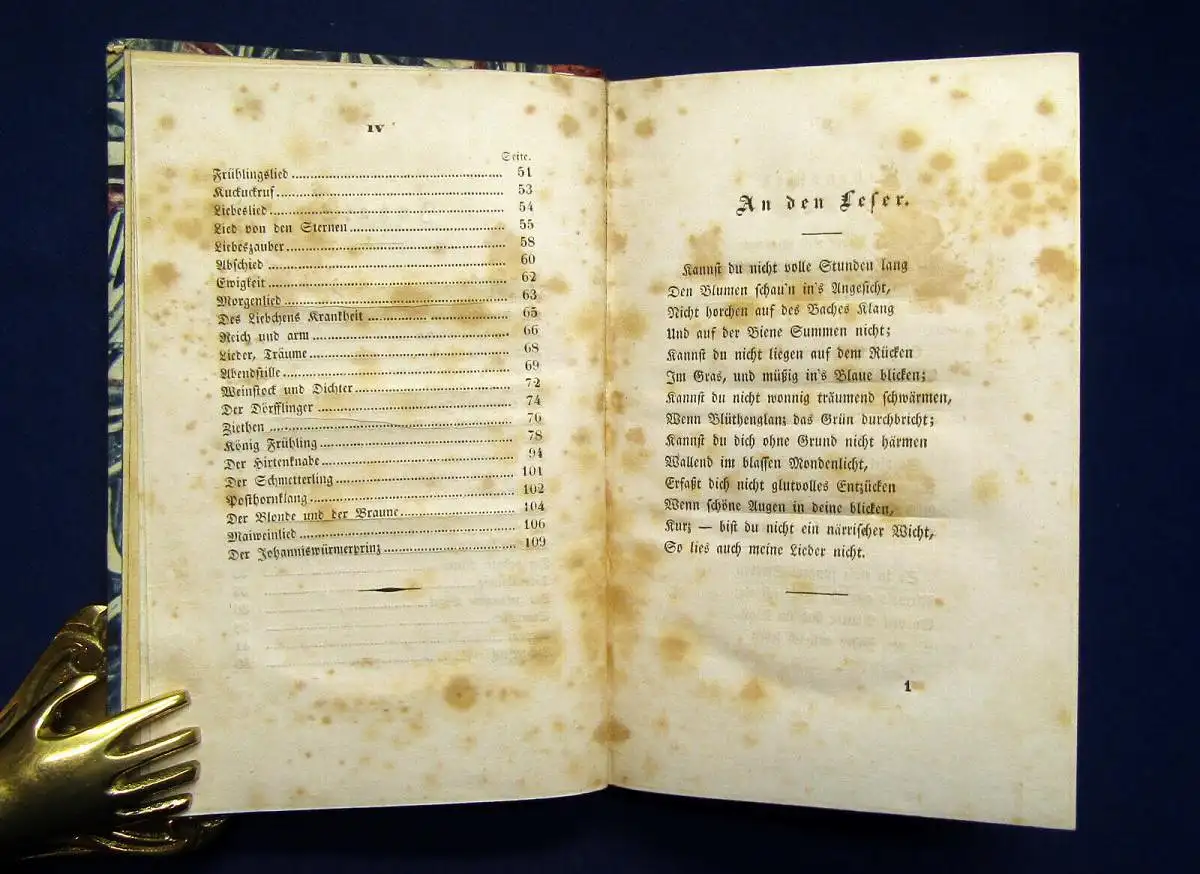 IV
Seite.
Frühlingslied 51
Kuckuckruf 53
Liebeslied 54
Lied von den Sternen 55
Liebeszauber 58
Abschied 60
Ewigkeit 62
Morgenlied 63
Des Liebchens Krankheit 65
Reich und arm 66
Lieder, Träume 68
Abendstille 69
Weinstock und Dichter 72
Der Dörfflinger 74
Ziethen 76
König Frühling 78
Der Hirtenknabe 94
Der Schmetterling 101
Posthornklang 102
Der Blonde und der Braune 104
Maiweinlied 106
Der Johanniswürmerprinz 109
An den Leser.
Kannst du nicht volle Stunden lang
Den Blumen schau'n in's Angesicht,
Nicht horchen auf des Baches Klang
Und auf der Biene Summen nicht;
Kannst du nicht liegen auf dem Rücken
Im Gras, und müßig in's Blaue blicken;
Kannst du nicht wonnig träumend schwärmen,
Wenn Blüthenglanz das Grün durchbricht;
Kannst du dich ohne Grund nicht härmen
Wallend im blassen Mondenlicht,
Erfaßt dich nicht glutvolles Entzücken
Wenn schöne Augen in deine blicken,
Kurz — bist du nicht ein närrischer Wicht,
So lies auch meine Lieder nicht.
1